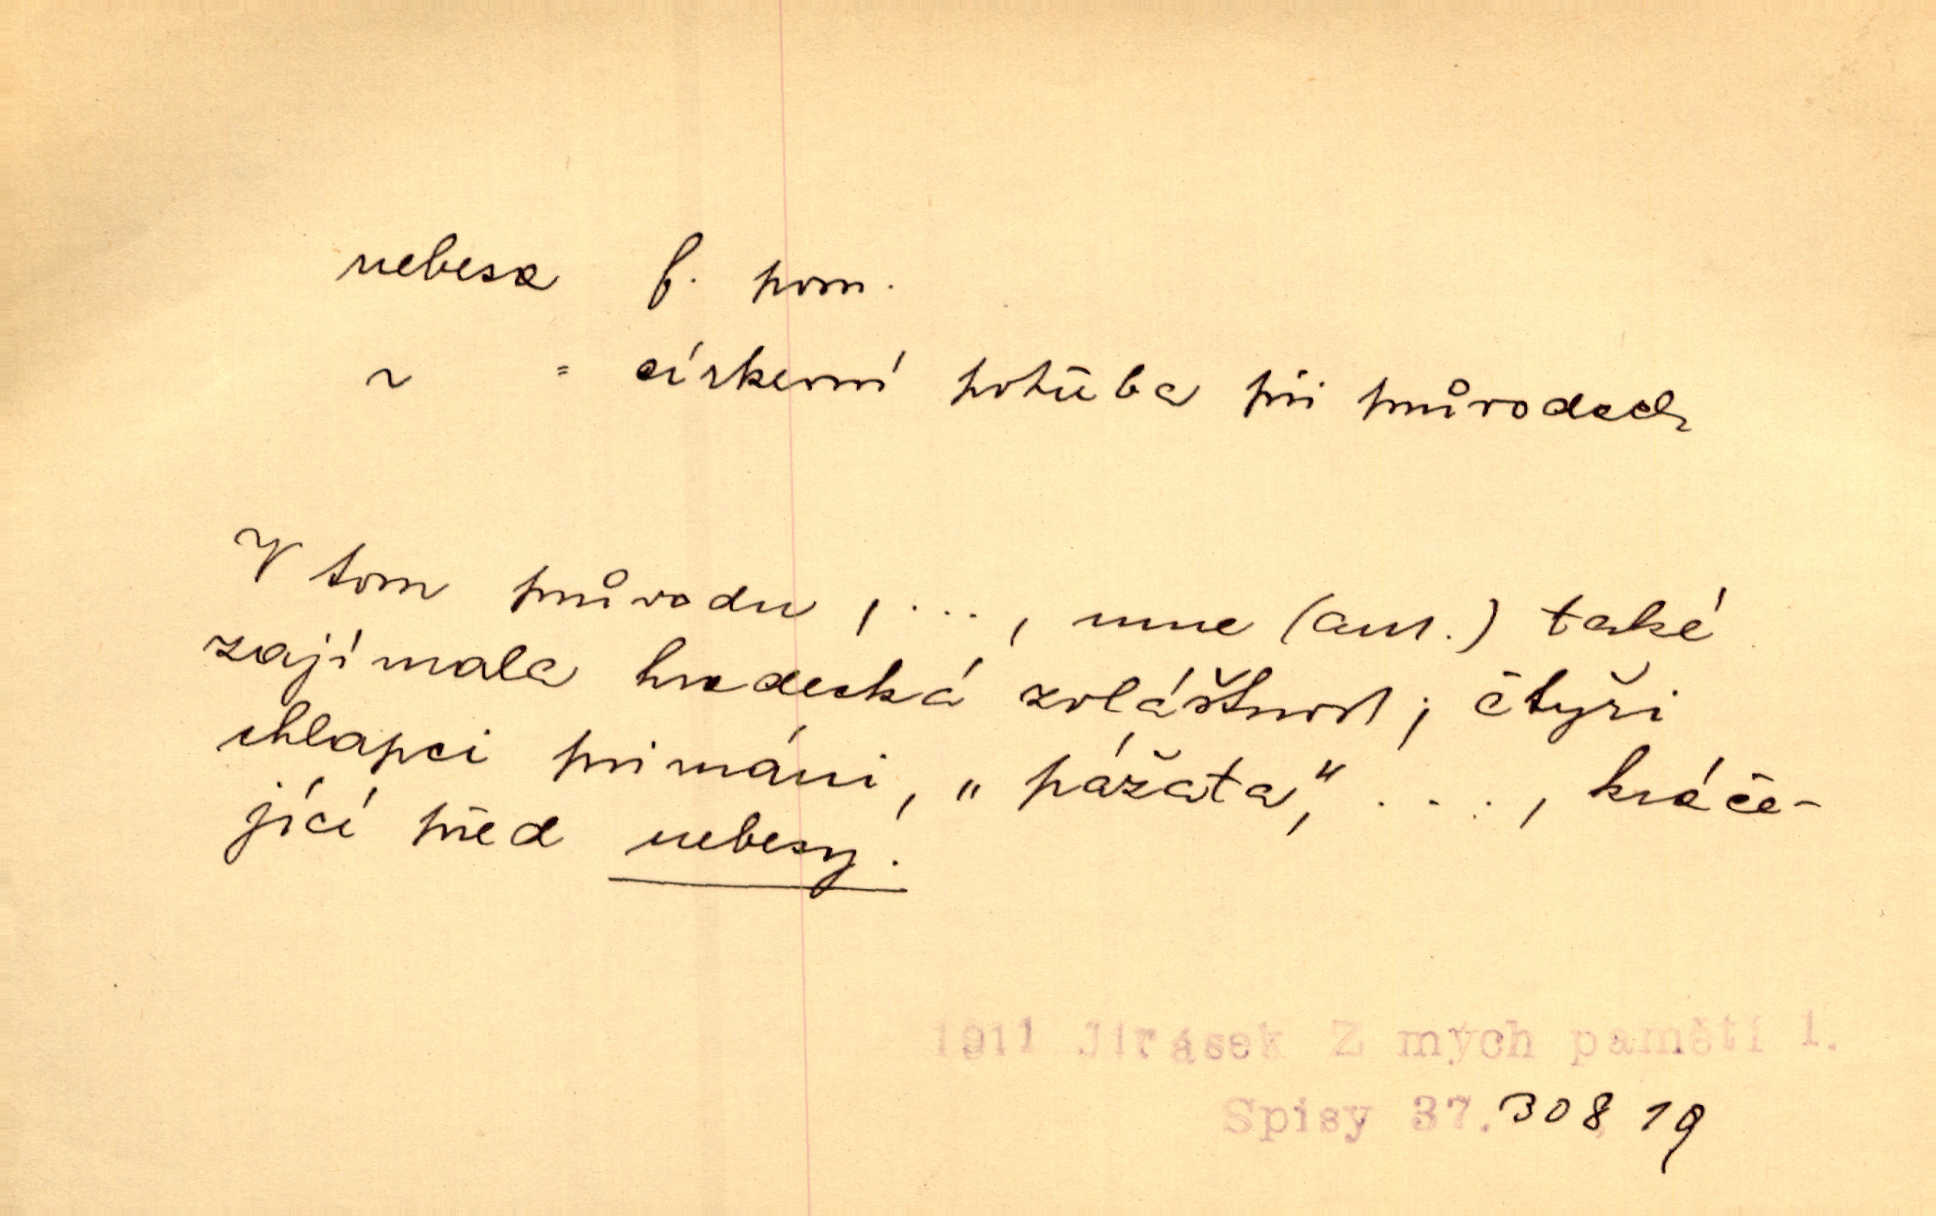 nebesa f. pom.
~ = církevní potřeba při průvodech
V tom průvodu, ..., mne (aut.) také
zajímala hradecká zvláštnost; čtyři
chlapci primáni, „pážata“, ..., kráče-
jící před nebesy.
1911 Jirásek Z mých pamětí 1.
Spisy 37. 308, 19